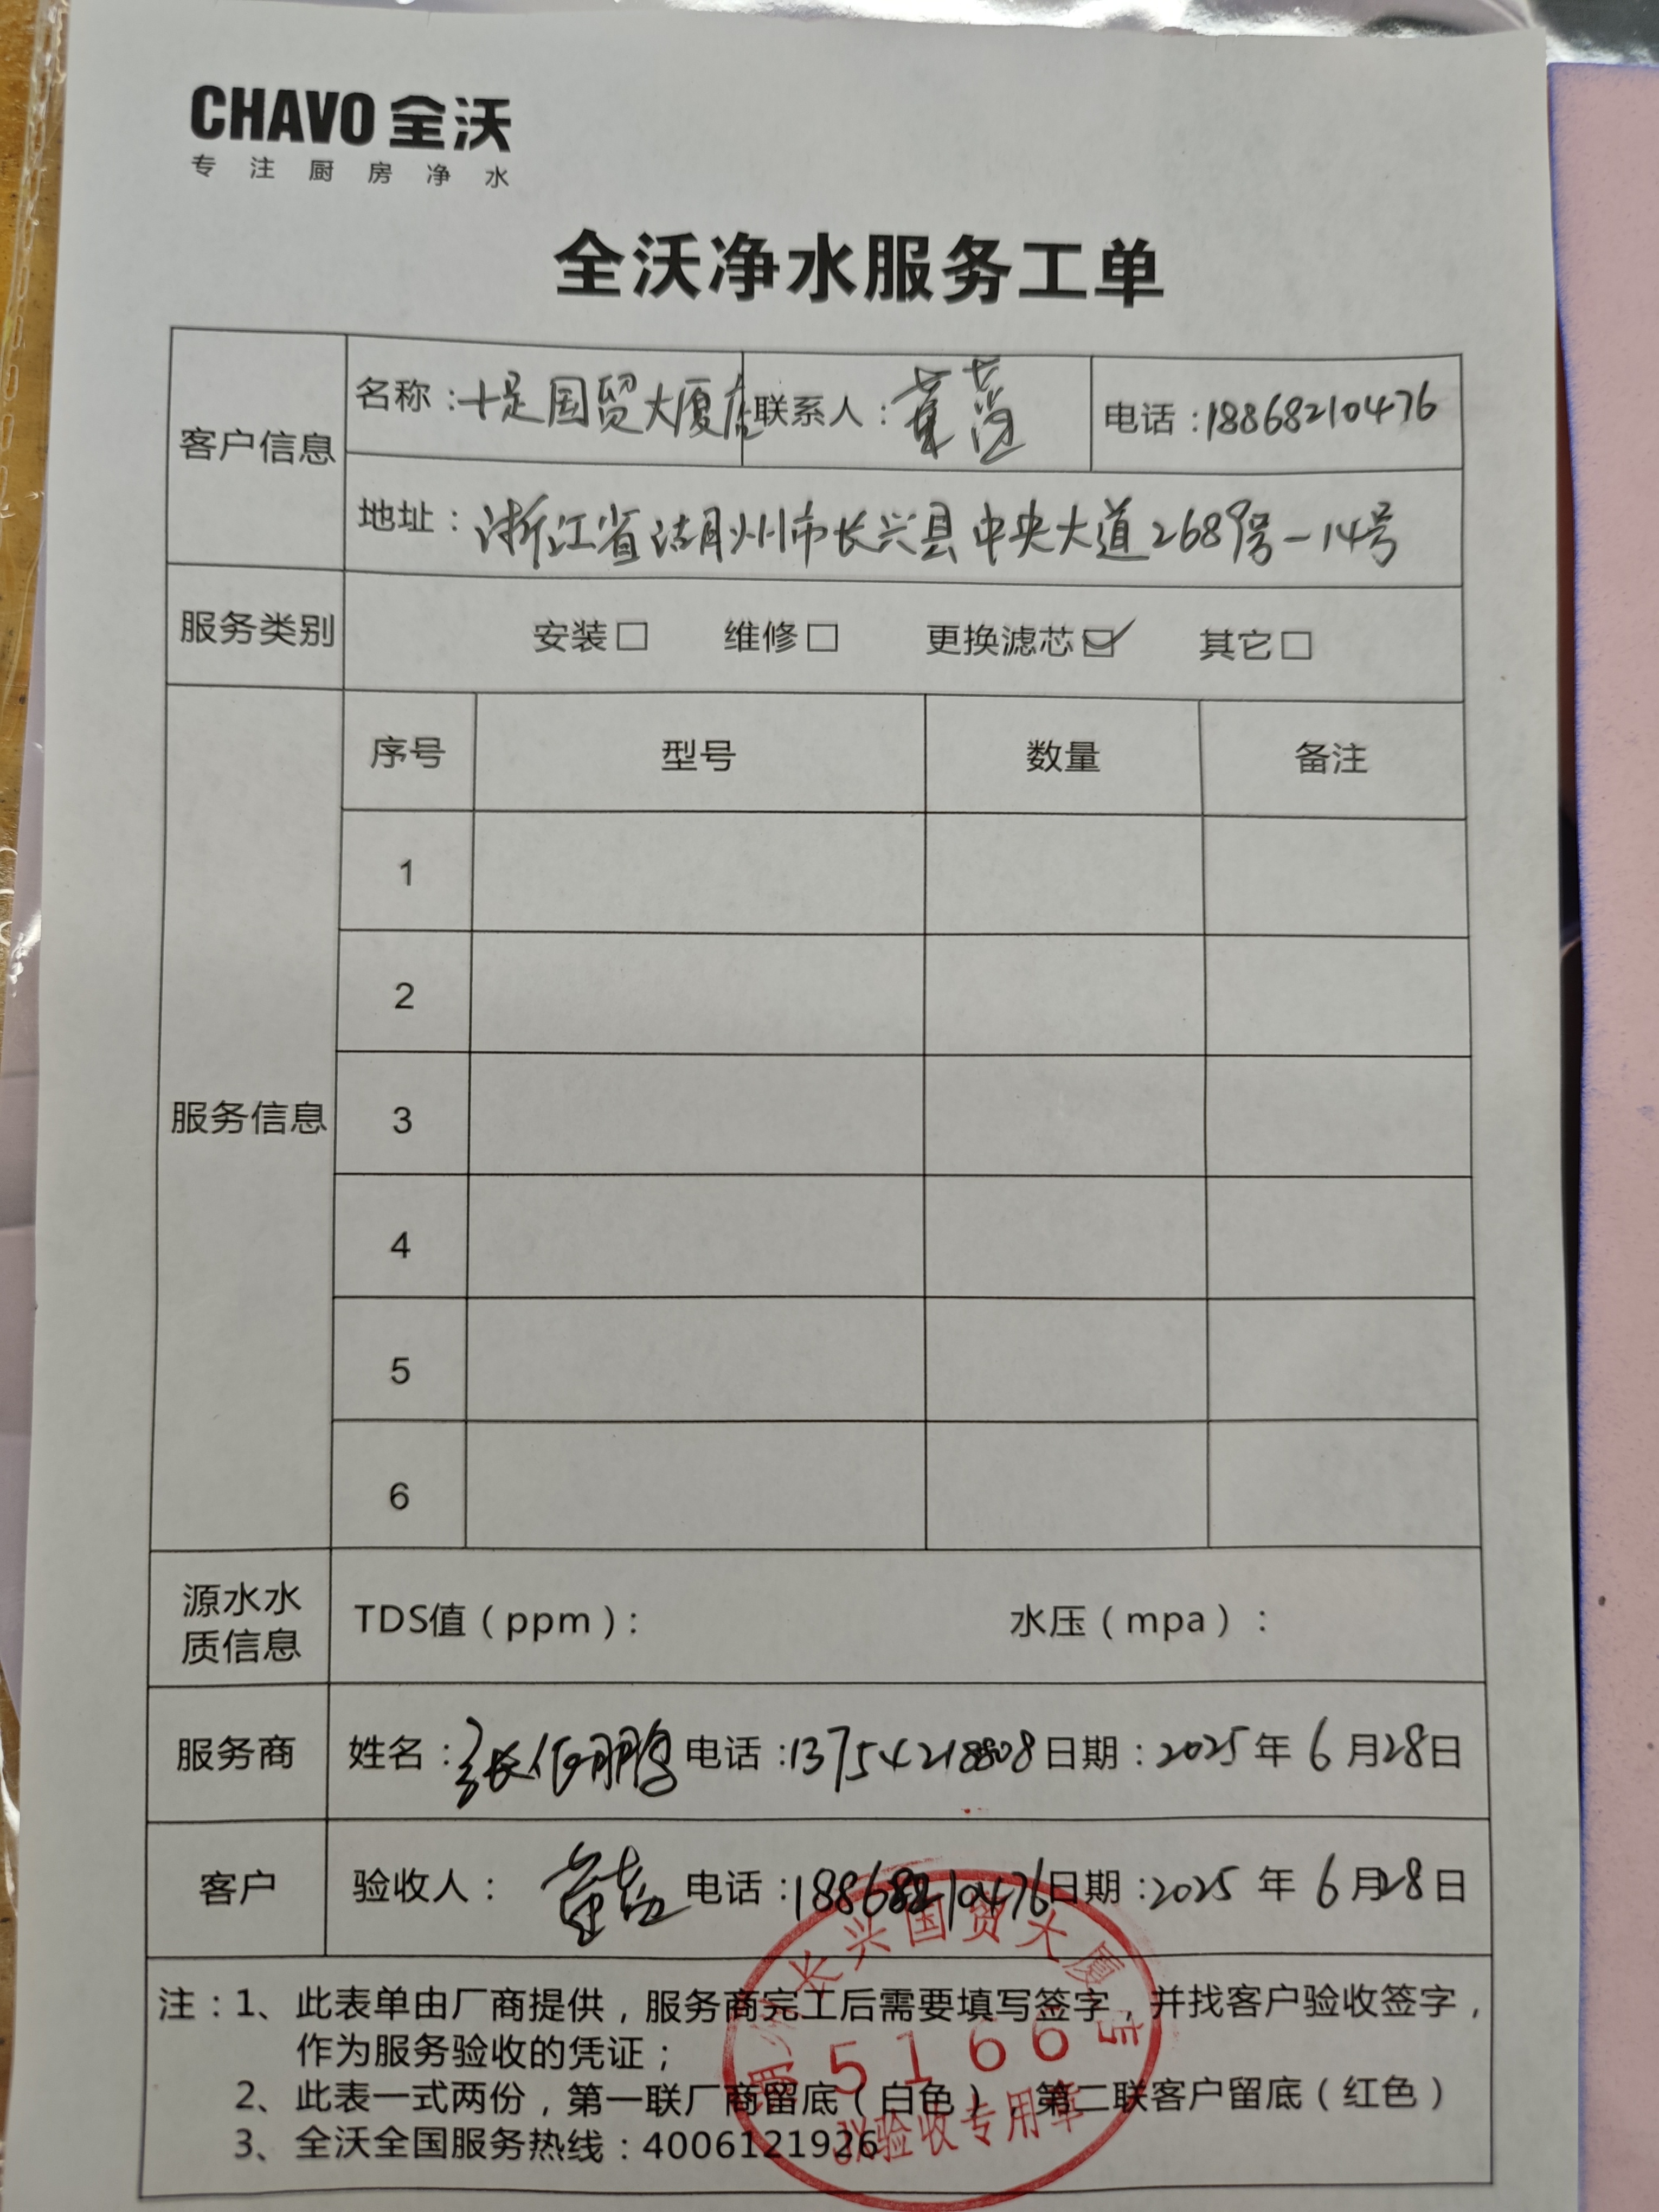 CHAVO 全沃
专注厨房净水
全沃净水服务工单
客户信息
名称：十足国贸大厦店 联系人： 电话：18868210476
地址：浙江省湖州市长兴县中央大道2689号-14号
服务类别 安装□ 维修□ 更换滤芯☑ 其它□
服务信息
序号 型号 数量 备注
1
2
3
4
5
6
源水水质信息 TDS值（ppm）： 水压（mpa）：
服务商 姓名： 电话：13754218808 日期：2025年6月28日
客户 验收人： 电话：18868210476 日期：2025年6月28日
注：1、此表单由厂商提供，服务商完工后需要填写签字，并找客户验收签字，
作为服务验收的凭证；
2、此表一式两份，第一联厂商留底（白色），第二联客户留底（红色）
3、全沃全国服务热线：4006121926
长兴国贸大厦店
5166
验收专用章